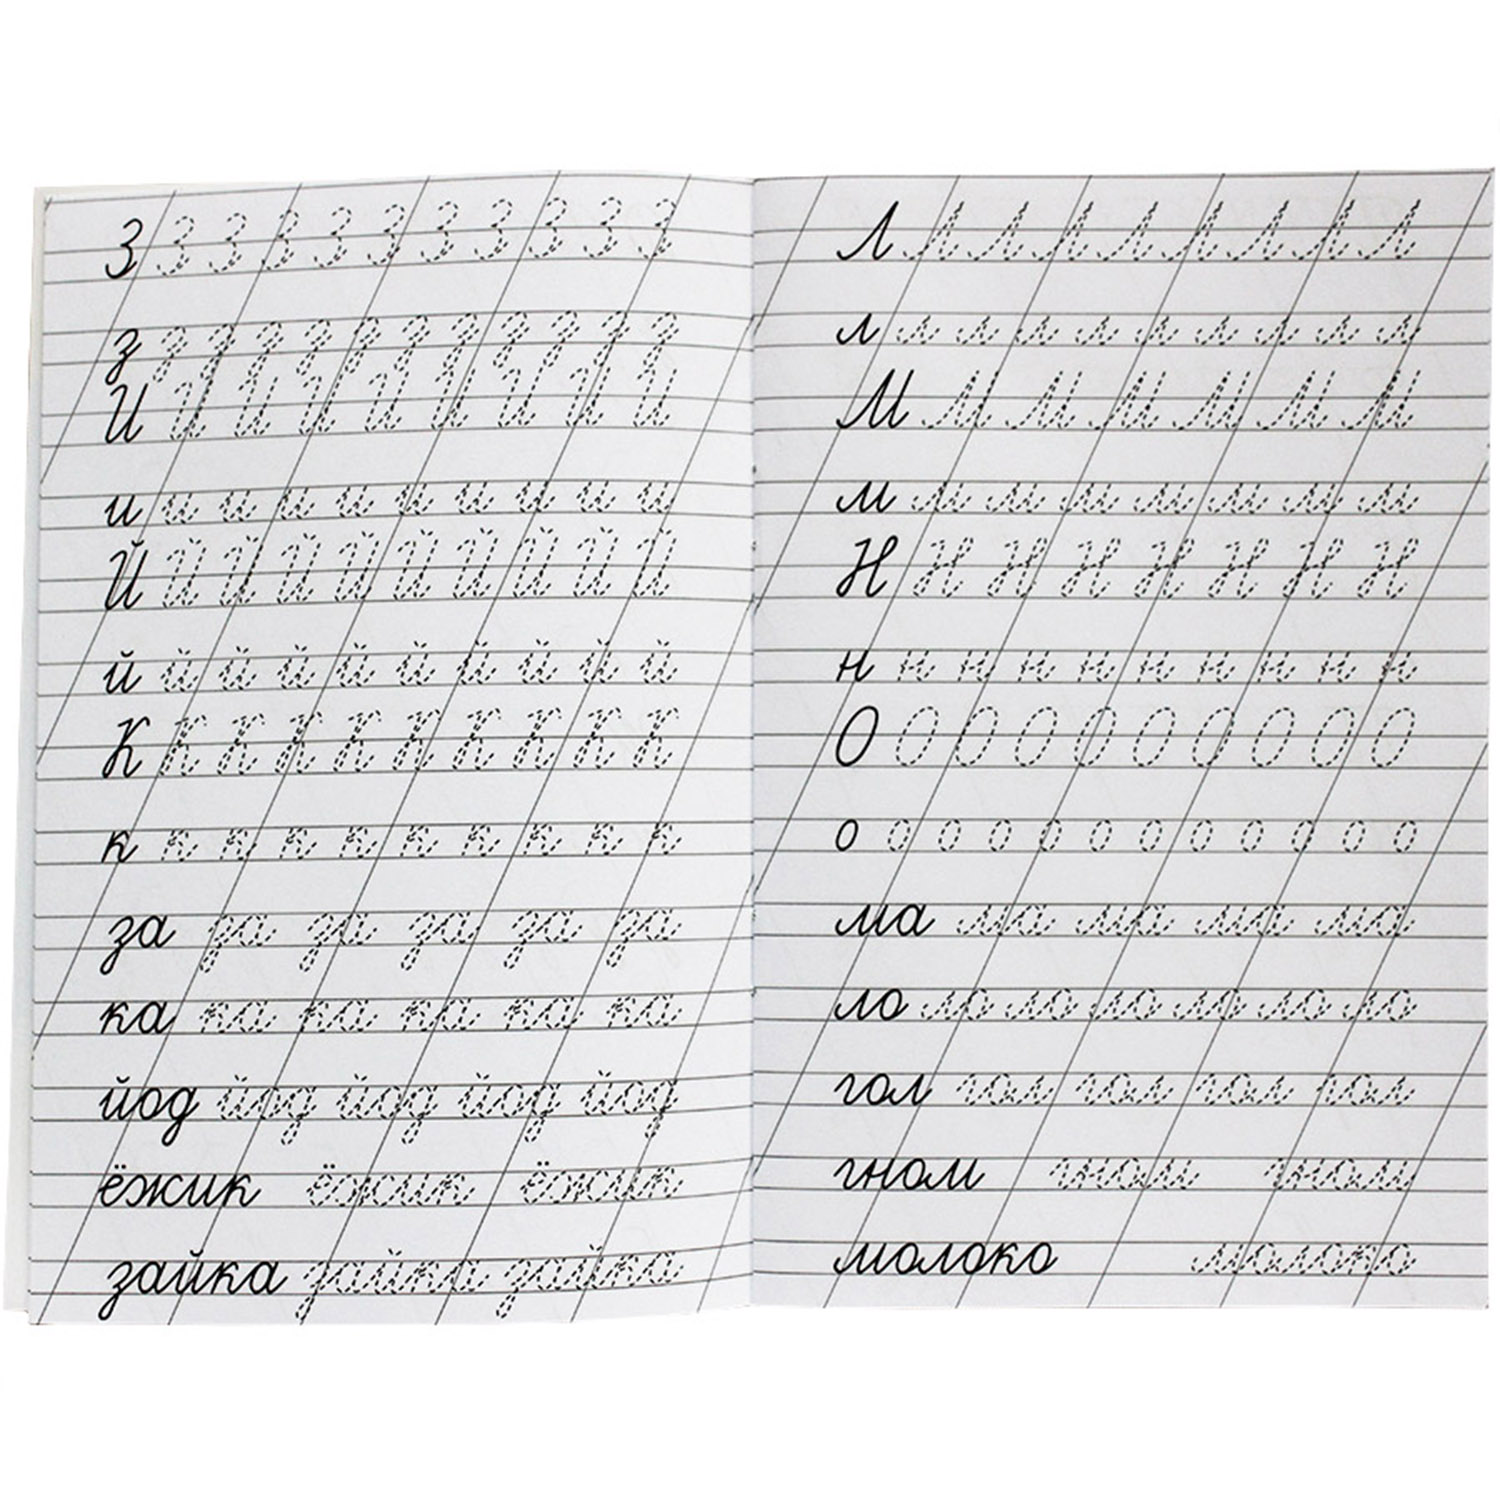 З З З З З З З З З З З
з з з з з з з з з з з з
И И И И И И И И И
и и и и и и и и и и
Й Й Й Й Й Й Й Й Й Й
й й й й й й й й й й
К К К К К К К К К К
к к к к к к к к к к
за за за за за за
ка ка ка ка ка ка
йод йод йод йод йод
ёжик ёжик ёжик
зайка зайка зайка
Л Л Л Л Л Л Л Л Л
л л л л л л л л л л
М М М М М М М
м м м м м м м м
Н Н Н Н Н Н Н Н
н н н н н н н н н н
О О О О О О О О О О
о о о о о о о о о о о о
ма ма ма ма ма
ло ло ло ло ло ло ло
гол гол гол гол гол
гном гном гном
молоко молоко